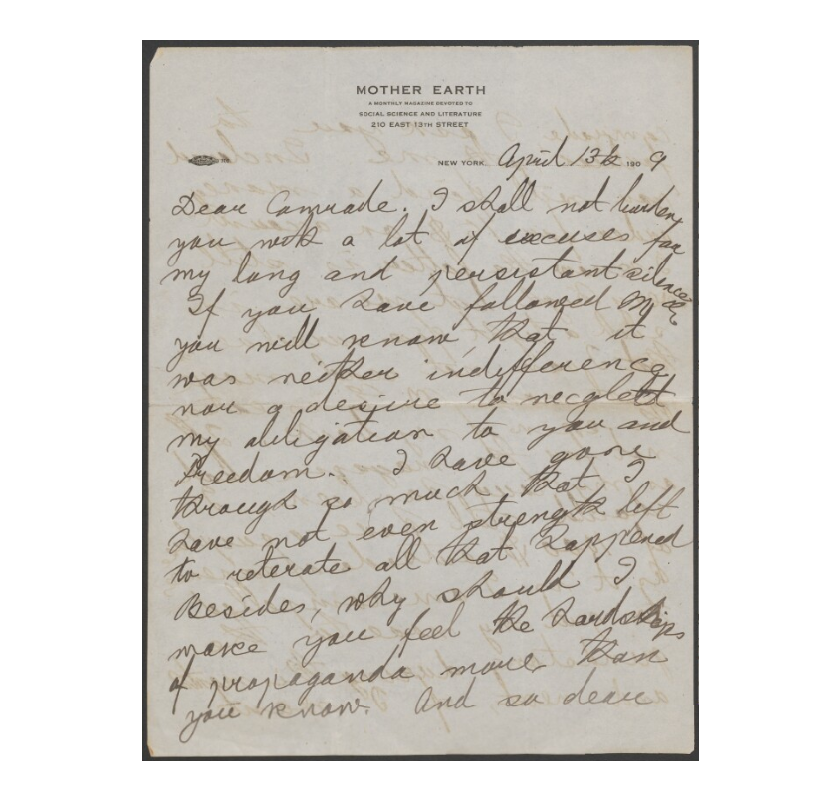 MOTHER EARTH
A MONTHLY MAGAZINE DEVOTED TO
SOCIAL SCIENCE AND LITERATURE
210 EAST 13TH STREET
NEW YORK, April 13th 190 9
Dear Comrade. I shall not burden
you with a lot of excuses for
my long and persistant silence
If you have followed M E
you will know that it
was neither indifference
nor a desire to necglett
my obligation to you and
Freedom. I have gone
through so much that I
have not even strength left
to reterate all that happened
Besides, why should I
make you feel the hardships
of propaganda more than
you know. And so dear